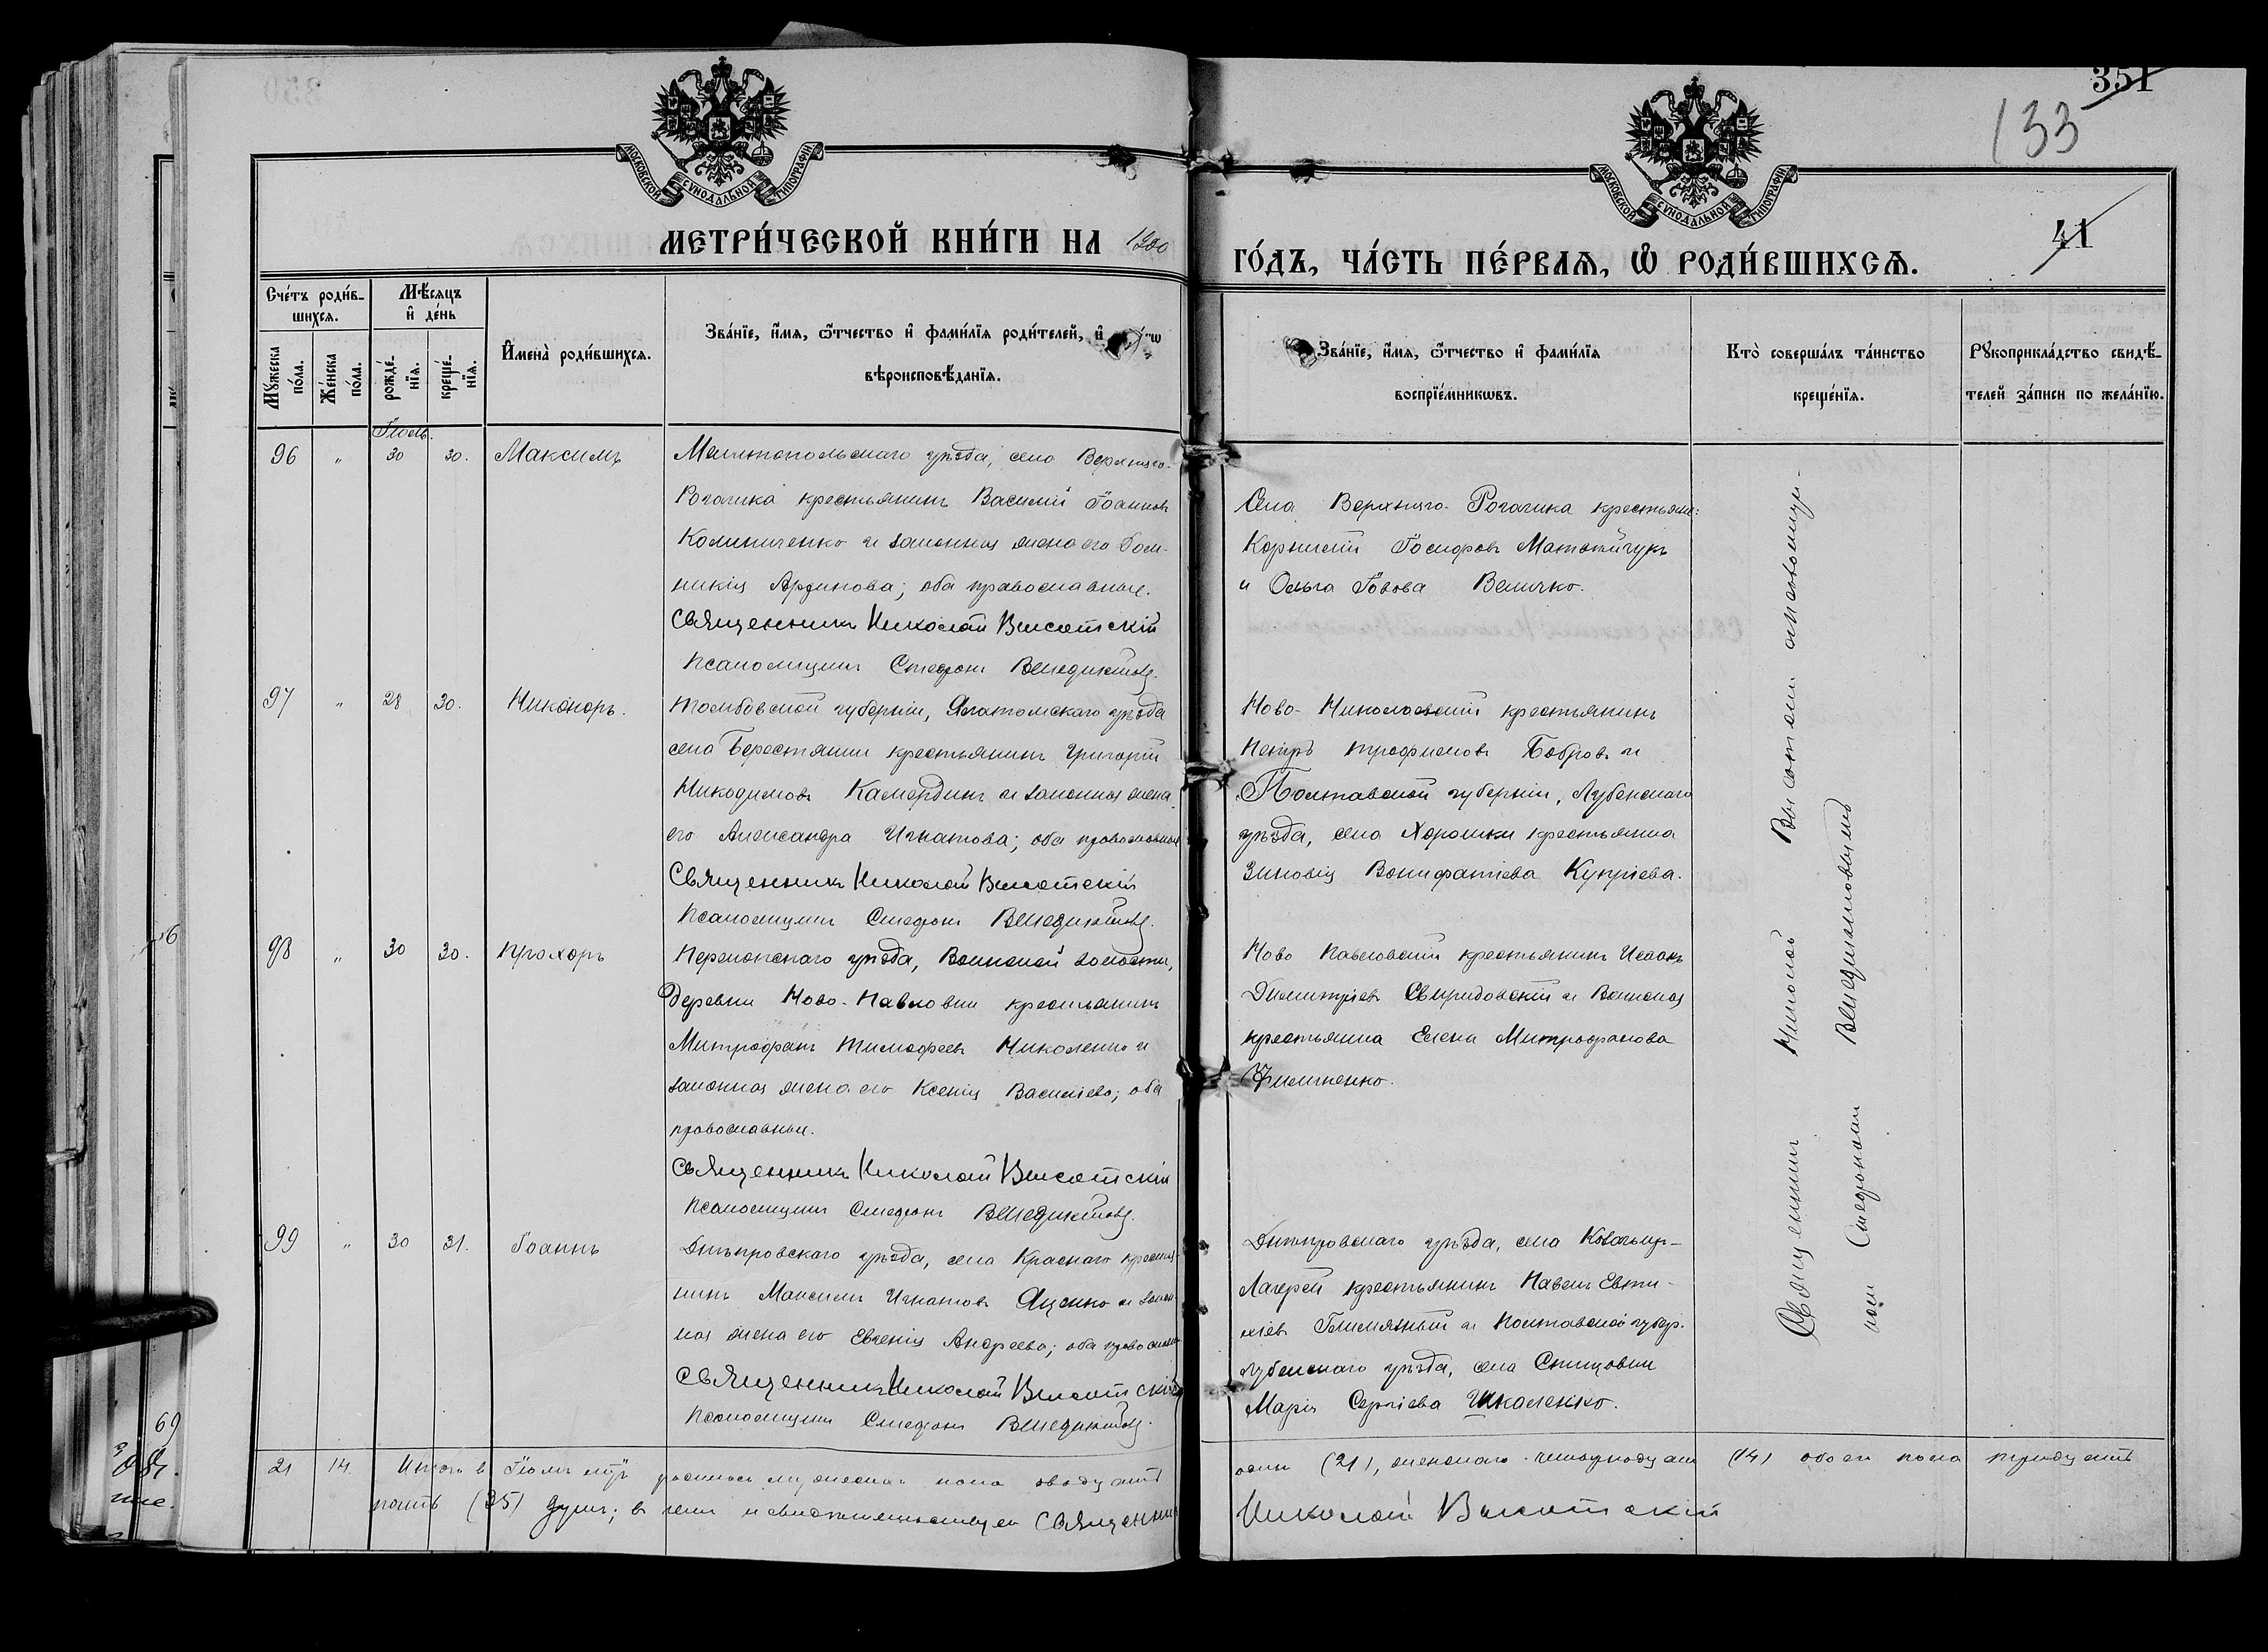 351
133
41
МОСКОВСКОЙ СѴНОДАЛЬНОЙ ТИПОГРАФІИ
МОСКОВСКОЙ СѴНОДАЛЬНОЙ ТИПОГРАФІИ
МЕТРИ́ЧЕСКОЙ КНИ́ГИ НА 1900
ГО́ДЪ, ЧА́СТЬ ПЕ́РВАѦ, Ѡ РОДИ́ВШИХСѦ.
Сче́тъ роди́в-
шихся.
Мѣ́сяцъ
и҆ де́нь
Му́жеска
по́ла.
Же́нска
по́ла.
рожде́-
нїя.
креще́-
нїя.
И҆мена̀ роди́вшихся.
Зва́нїе, и҆́мя, ѻ҆́тчество и҆ фами́лїя роди́телей, и҆
вѣроисповѣ́данїя.
Зва́нїе, и҆́мя, ѻ҆́тчество и҆ фами́лїя
воспрїе́мникѡвъ.
Кто̀ соверша́лъ та́инство
креще́нїя.
Рукоприкла́дство свидѣ́-
телей за́писи по жела́нїю.
Іюль.
96 " 30 30. Максимъ
Мелитопольскаго уѣзда, села Верхняго-
Рогачика крестьянинъ Василій Іоанновъ
Калиниченко и законная жена его Дом-
никія; оба православные.
Священникъ Николай Высотскій
Псаломщикъ Стефанъ Венедиктовъ.
Села Верхняго-Рогачика крестьяне:
Корнилій Іосифовъ Матвійчукъ
и Ольга Іовова Величко.
97 " 28 30. Никаноръ.
Тамбовской губерніи, Елатомскаго уѣзда
села Берестянки крестьянинъ Григорій
Никодимовъ Камердинъ и законная жена
его Александра Игнатова; оба православные
Священникъ Николай Высотскій
Псаломщикъ Стефанъ Венедиктовъ.
Ново-Николаевскій крестьянинъ
Петръ Трофимовъ Бобровъ и
Полтавской губерніи, Лубенскаго
уѣзда, села Хорошки крестьянка
Зиновія Вонифатіева Купріева.
98 " 30 30. Прохоръ
Перекопскаго уѣзда, Воинской волости,
деревни Ново-Павловки крестьянинъ
Митрофанъ Тимофеевъ Николенко и
законная жена его Ксенія Василіева; оба
православные.
Священникъ Николай Высотскій
Псаломщикъ Стефанъ Венедиктовъ.
Ново Павловскій крестьянинъ Исаакъ
Димитріевъ Свиридовскій и Воинская
крестьянка Елена Митрофанова
Филипенко.
99 " 30 31. Іоаннъ
Днѣпровскаго уѣзда, села Краснаго крестья-
нинъ Максимъ Игнатовъ Яценко и закон-
ная жена его Евгенія Андреева; оба православн.
Священникъ Николай Высотскій
Псаломщикъ Стефанъ Венедиктовъ.
Днѣпровскаго уѣзда, села Козачьихъ-
Лагерей крестьянинъ Павелъ Евти-
хіевъ и Полтавской губер.
Лубенскаго уѣзда, села Снитовки
Марія Сергіева Шкаленко.
Священникъ Николай Высотскій съ псаломщи-
комъ Стефаномъ Венедиктовымъ
21 14 Итого в Іюлѣ м-цѣ родилось мужескаго пола двадцать
одинъ (21), женскаго четырнадцать (14) обоего пола тридцать
пять (35) душъ; в чемъ и свидѣтельствуемъ Священникъ
Николай Высотскій
69